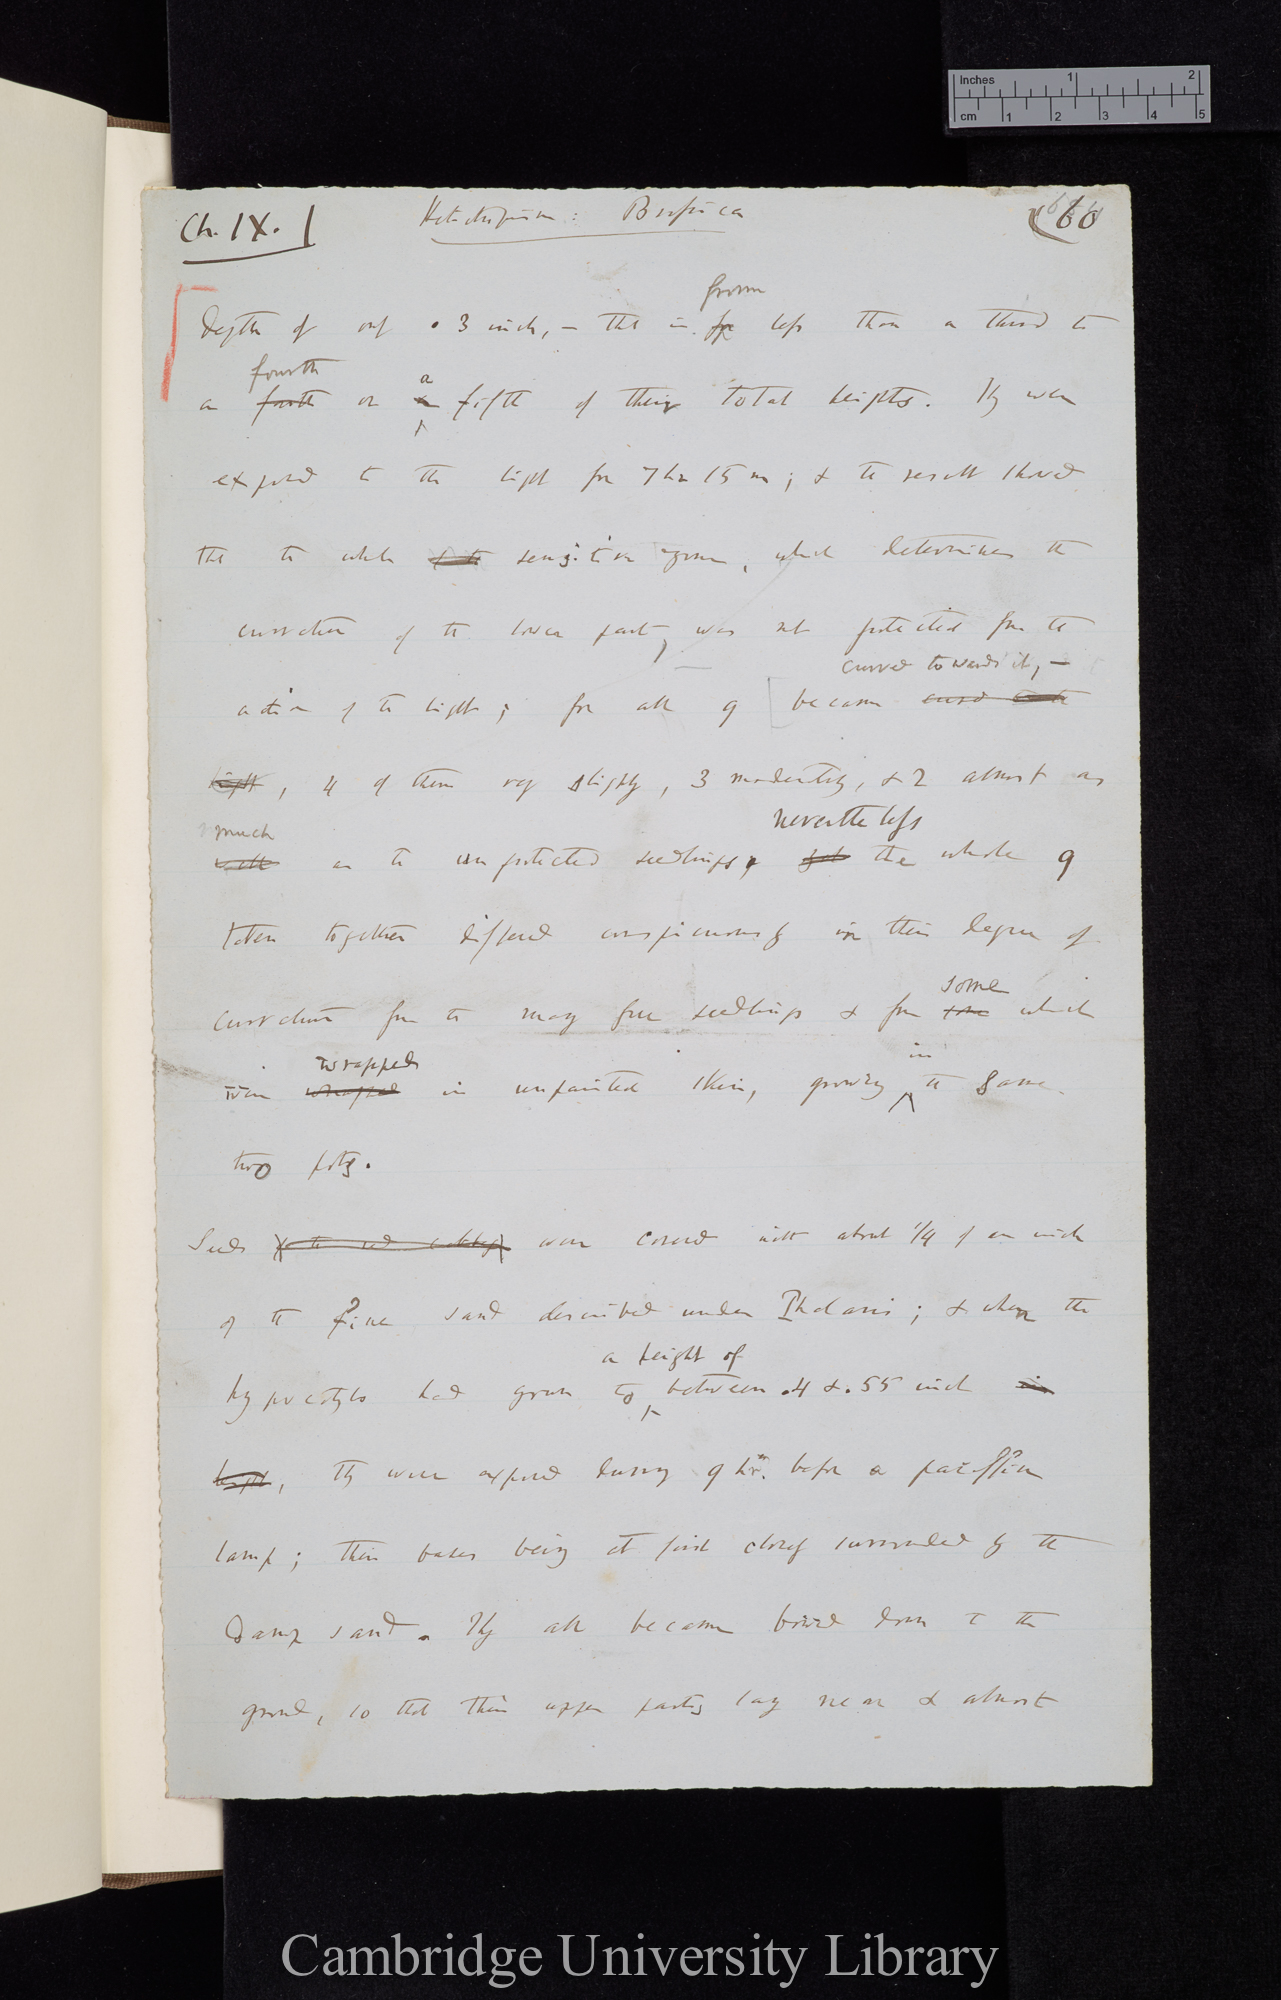 inches 1 2
cm 1 2 3 4 5
Ch. IX.
Heliotropism: Brassica
(60
from
depth of only .3 inch, — that is less than a third to
fourth
a fourth or a fifth of their total heights. They were
exposed to the light for 7 h 15 m; & the result showed
that the whole sensitive zone, which determines the
curvature of the lower part, was not protected from the
curved towards it, —
action of the light; for all 9 became curved towards
light, 4 of them very slightly, 3 moderately, & 2 almost as
much nevertheless
well as the unprotected seedlings, yet the whole 9
taken together differed conspicuously in their degree of
some
curvature from the many free seedlings & from some which
wrapped in
were wrapped in unpainted skin, growing the same
two pots.
Seeds of the red cabbage were covered with about 1/4 of an inch
of the fine sand described under Phalaris; & when the
a height of
hypocotyls had grown to between .4 & .55 inch in
height, they were exposed during 9 hrs. before a paraffin
lamp; their bases being at first closely surrounded by the
damp sand. They all became bowed down to the
ground, so that their upper parts lay near & almost
Cambridge University Library